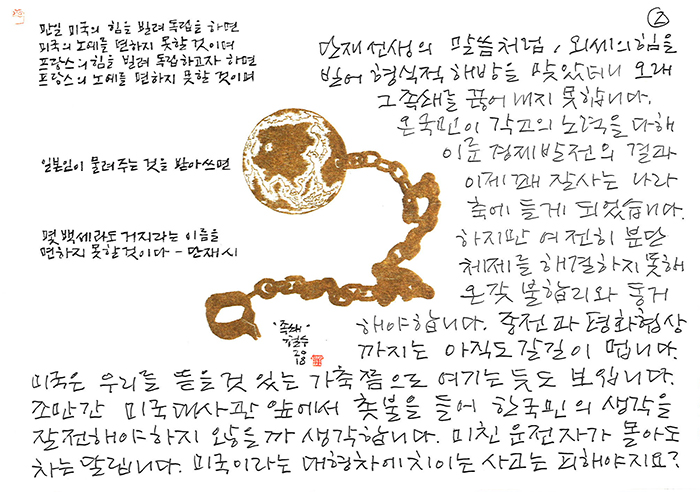 ②
만일 미국의 힘을 빌려 독립을 하면
미국의 노예를 면하지 못할 것이며
프랑스의 힘을 빌려 독립하고자 하면
프랑스의 노예를 면하지 못할 것이며
일본인이 물려주는 것을 받아쓰면
몇 백세라도 거지라는 이름을
면하지 못할 것이다 - 단재 시
단재선생의 말씀처럼, 외세의 힘을
빌어 형식적 해방을 맞았더니 오래
그 족쇄를 끊어내지 못합니다.
온국민이 각고의 노력을 다해
이룬 경제발전의 결과
이제 꽤 잘사는 나라
축에 들게 되었습니다.
하지만 여전히 분단
체제를 해결하지 못해
온갖 불합리와 동거
해야합니다. 종전과 평화협상
까지는 아직도 갈길이 멉니다.
미국은 우리를 뜯을 것 있는 가축쯤으로 여기는 듯도 보입니다.
조만간 미국대사관 앞에서 촛불을 들어 한국민의 생각을
잘 전해야 하지 않을까 생각합니다. 미친 운전자가 몰아도
차는 달립니다. 미국이라는 대형차에 치이는 사고는 피해야지요?
'족쇄'
철수
2018